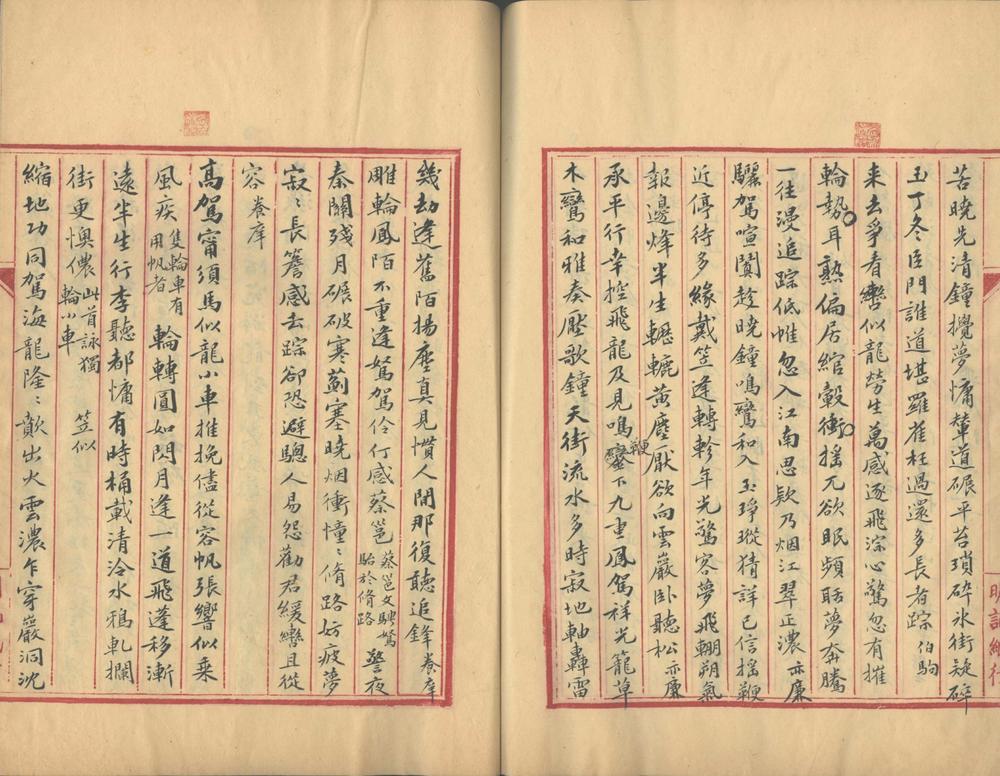 苦曉先清鐘攪夢慵輦道碾平苔瑣碎氷街凝碎
玉丁冬臣門誰道堪羅雀枉過還多長者踪 伯駒
来去爭看轡似龍勞生萬感逐飛淙心驚忽有摧
輪勢耳熟偏居綰轂衝摇兀欲眠頻聒夢奔騰
一往漫追踪低帷忽入江南思欵乃烟江翠正濃 亦廉
驪駕喧闐趁曉鐘鳴鸞和入玉琤瑽猜詳已信摇鞭
近停待多緣戴笠逢轉軫年光驚客夢飛輣朔氣
報邊烽半生轣轆黄塵厭欲向雲巖卧聽松 亦廉
承平行幸控飛龍及見鳴鞭下九重鳳駕祥光籠草
木鸞和雅奏壓歌鐘天街流水多時寂地軸轟雷
幾劫逢舊陌揚塵真見慣人間那復聽追鋒 養庠
雕輪鳳陌不重逢駑駕伶仃感蔡邕 蔡邕文騁駑駘於脩路 警夜
秦關殘月碾破寒薊塞曉烟衝憧憧脩路妨疲夢
寂寂長簷感去踪卻恐避驄人易怨勸君緩轡且從
容 養庠
高駕甯須馬似龍小車推挽儘從容帆張響似乗
風疾 隻輪車有用帆者 輪轉圓如閃月逢一道飛蓬移漸
遠半生行李聽都慵有時桶載清泠水鴉軋攔
街更懊儂 此首詠獨輪小車 笠似
縮地功同駕海龍隆隆歕出火雲濃乍穿巖洞沈